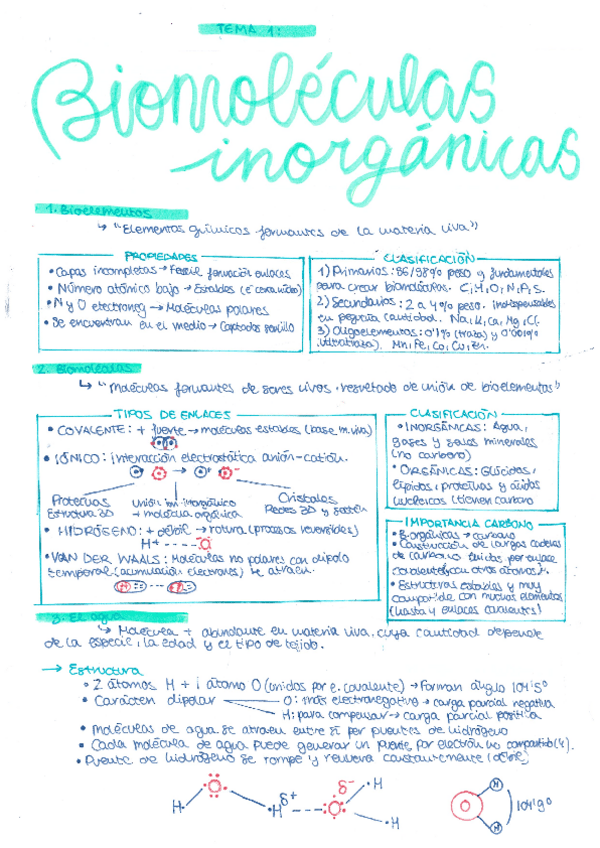 TEMA 1:
Biomoléculas
inorgánicas
1. Bioelementos
↳ "Elementos químicos formantes de la materia viva"
PROPIEDADES
• Capas incompletas → Fácil formación enlaces
• Número atómico bajo → Estables (e⁻ cerca núcleo)
• N y O electroneg → Moléculas polares
• Se encuentran en el medio → Captados sencillo
CLASIFICACIÓN
1) Primarios: 96/98% peso y fundamentales
para crear biomoléculas. C, H, O, N, P, S.
2) Secundarios: 2 a 4% peso. indispensables
en pequeña cantidad. Na, K, Ca, Mg, Cl.
3) Oligoelementos: 0'1% (traza) y 0'001%
(ultratraza). Mn, Fe, Co, Cu, Zn.
2. Biomoléculas
↳ "Moléculas formantes de seres vivos, resultado de unión de bioelementos"
TIPOS DE ENLACES
• COVALENTE: + fuerte → moléculas estables (base m. viva)
• IÓNICO: interacción electrostática anión-catión.
Proteínas
Estructura 3D
Unión ion inorgánico
+ molécula orgánica
Cristales
Redes 3D y sostén
• HIDRÓGENO: + débil → rotura (procesos reversibles)
H+ ---- O
• VAN DER WAALS: Moléculas no polares con dipolo
temporal (acumulación electrones) se atraen.
CLASIFICACIÓN
• INORGÁNICAS: Agua,
gases y sales minerales
(no carbono)
• ORGÁNICAS: Glúcidos,
lípidos, proteínas y ácidos
nucleicos (tienen carbono
IMPORTANCIA CARBONO
• B. orgánicas → carbono
• Construcción de largas cadenas
de carbono (unidas por enlace
covalente) y con otros átomos).
• Estructuras estables y muy
compartide con muchos elementos
(hasta 4 enlaces covalentes)
3. El agua
↳ Molécula + abundante en materia viva, cuya cantidad depende
de la especie, la edad y el tipo de tejido.
→ Estructura
• 2 átomos H + 1 átomo O (unidos por e. covalente) → Forman ángulo 104'5º
• Carácter dipolar
O: más electronegativo → carga parcial negativa
H: para compensar → carga parcial positiva
• Moléculas de agua se atraen entre sí por puentes de hidrógeno
• Cada molécula de agua puede generar un puente por electrón no compartido (4).
• Puente de hidrógeno se rompe y renueva constantemente (débil)
O δ⁻ H
H δ⁺ H H O H 104'9º
H